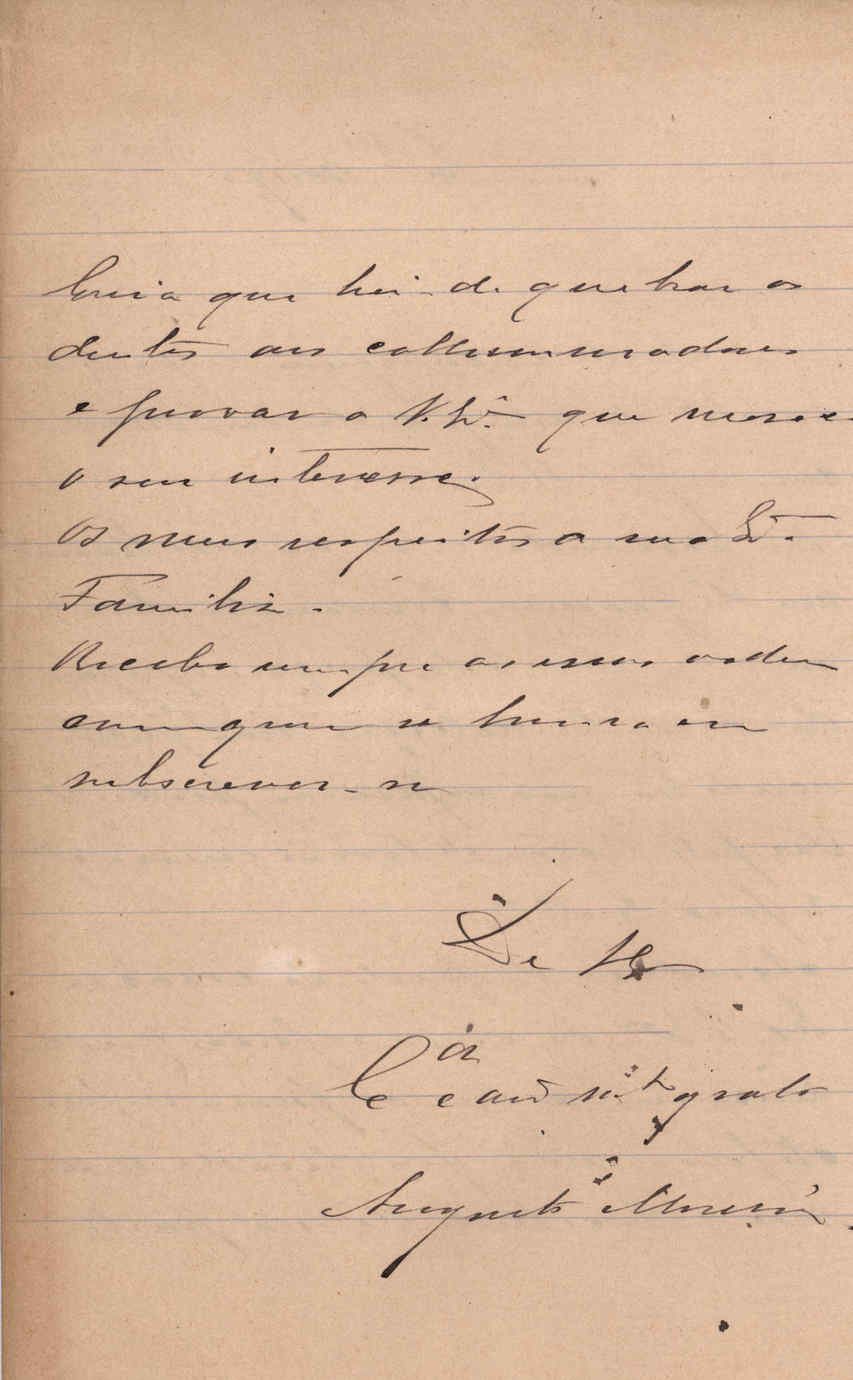 Creia que hei-de quebrar os
dentes aos calumniadores
e provar a V. Ex.ª que mereço
o seu interesse.
Os meus respeitos a sua Ex.ma
Familia.
Receba sempre as suas ordens
com quem se honra em
subscrever-se
De V. Ex.ª
C.º att.º
grato
Augusto Moreira